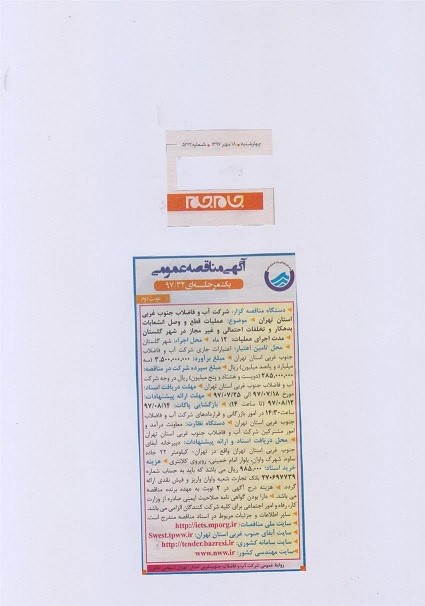 چهارشنبه ۱۸ مهر ۱۳۹۷ شماره ۵۲۲۳
جام جم
آگهی مناقصه عمومی
یک مرحله‌ای ۹۷/۳۲
نوبت دوم
دستگاه مناقصه گزار: شرکت آب و فاضلاب جنوب غربی
استان تهران موضوع: عملیات قطع و وصل انشعابات
بدهکار و تخلفات احتمالی و غیر مجاز در شهر گلستان
مدت اجرای عملیات: ۱۲ ماه محل اجراء: شهر گلستان
محل تامین اعتبار: اعتبارات جاری شرکت آب و فاضلاب
جنوب غربی استان تهران مبلغ برآورد: ۳,۵۰۰,۰۰۰,۰۰۰ (سه
میلیارد و پانصد میلیون) ریال مبلغ سپرده شرکت در مناقصه:
۲۸۵,۰۰۰,۰۰۰ (دویست و هشتاد و پنج میلیون) ریال در وجه شرکت
آب و فاضلاب جنوب غربی استان تهران مهلت دریافت اسناد:
مورخ ۹۷/۰۷/۱۸ الی ۹۷/۰۷/۲۵ مهلت ارائه پیشنهادات:
۹۷/۰۸/۱۲ (تا ساعت ۱۴) بازگشایی پاکات: ۹۷/۰۸/۱۴
ساعت ۱۴:۳۰ در امور بازرگانی و قراردادهای شرکت آب و فاضلاب
جنوب غربی استان تهران دستگاه نظارت: معاونت درآمد و
امور مشترکین شرکت آب و فاضلاب جنوب غربی استان تهران
محل دریافت اسناد و ارائه پیشنهادات: دبیرخانه آبفای
جنوب غربی استان تهران واقع در تهران- کیلومتر ۲۲ جاده
ساوه، شهرک واوان، بلوار امام خمینی، روبروی کلانتری هزینه
خرید اسناد: ۹۸۵,۰۰۰ ریال می باشد که باید به حساب شماره
۲۷۰۶۹۷۷۳۹ بانک تجارت شعبه واوان واریز و فیش نقدی ارائه
گردد. هزینه درج آگهی در ۲ نوبت به عهده برنده مناقصه
می باشد. دارا بودن گواهی نامه صلاحیت ایمنی صادره از وزارت
کار، رفاه و امور اجتماعی برای کلیه شرکت کنندگان الزامی می باشد.
سایر اطلاعات و جزئیات مربوط در اسناد مناقصه مندرج است.
سایت ملی مناقصات: http://iets.mporg.ir
سایت آبفای جنوب غربی استان تهران: Swest.tpww.ir
سایت سامانه کشوری: http://tender.bazresi.ir
سایت مهندسی کشور: www.nww.ir
روابط عمومی شرکت آب و فاضلاب جنوب غربی استان تهران